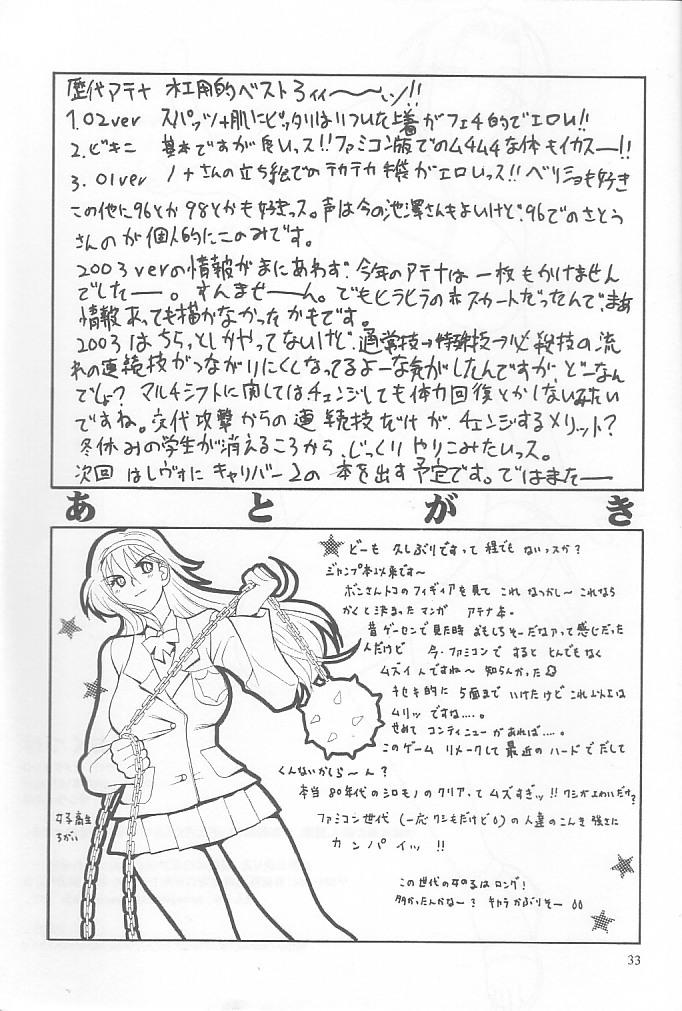 歴代アテナ 水工用的ベスト3ィィ〜〜ッ!!
1.02ver スパッツ+肌にピッタリはりついた上着がフェチ的でエロい!!
2.ビキニ 基本ですが良いっス!!ファミコン版でのムチムチな体もイカスー!!
3.01ver ノナさんの立ち絵でのテカテカ手袋がエロいっス!!ベリショも好き
この他に96とか98とかも好きっス。声は今の池澤さんもよいけど、96でのさとう
さんのが個人的にこのみです。
2003verの情報がまにあわず、今年のアテナは一枚もかけません
でしたー。すんませーん。でもヒラヒラの赤スカートだったんで、まあ
情報あっても描かなかったかもです。
2003はちらっとしかやってないけど、通常技→特殊技→必殺技の流
れの連続技がつながりにくくなってるよーな気がしたんですが、どーなん
でしょ?マルチシフトに関してはチェンジしても体力回復とかしないみたい
ですね。交代攻撃からの連続技だけが、チェンジするメリット?
冬休みの学生が消えるころから、じっくりやりこみたいっス。
次回はしヴォにキャリバー2の本を出す予定です。ではまたー
あとがき
どーも 久しぶりですって程でもないっスか?
ジャンプ本以来です〜
ボンさんトコのフィギィアを見て これなっかし〜これなら
かくと決まったマンガ アテナ本。
昔ゲーセンで見た時おもしろそーだなアって感じだった
んだけど 今・ファミコンですると とんでもなく
ムズイんですね〜 知らんかった
キセキ的に5面までいけたけどこれ以上は
ムリッですね....。
せめてコンティニューがあれば....。
このゲームリメークして最近のハードでだして
くんないかしら〜ん?
本当80年代のシロモノのクリアってムズすぎッ!!ワシがよわいだけ?
ファミコン世代(一応ワシもだけど)の人達のこんき強さに
カンパイッ!!
女子高生
ろがい
この世代の女のるはロング!
多かったんかなー? キャラかぶりそー
33